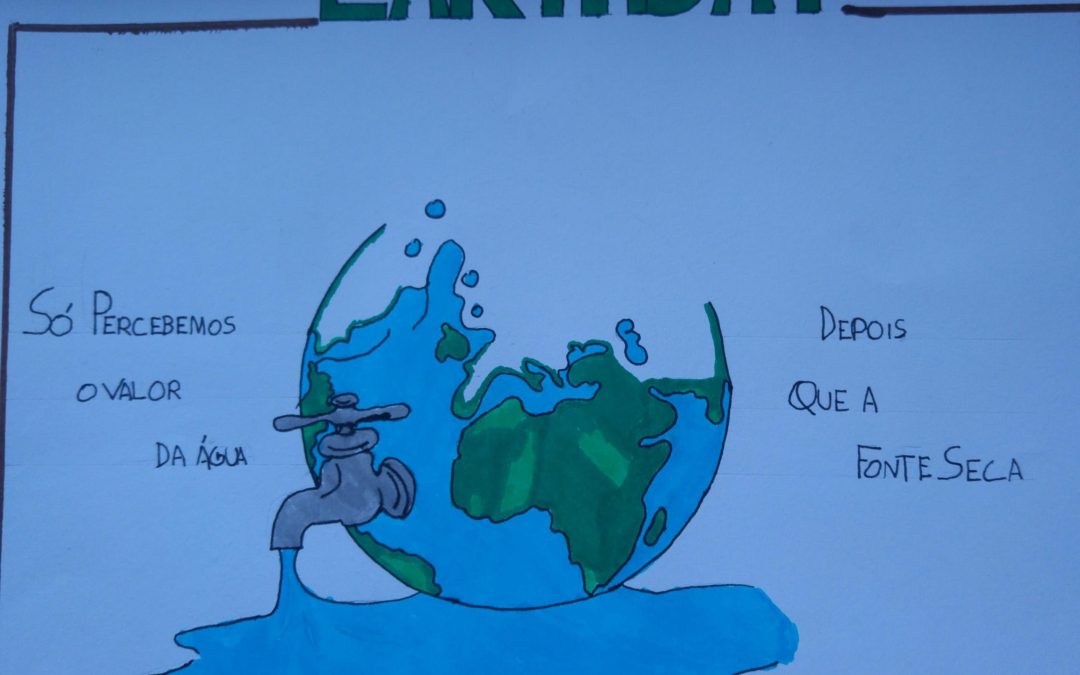 EARTHDAY
Só PERCEBEMOS
O VALOR
DA ÁGUA
DEPOIS
QUE A
FONTE SECA